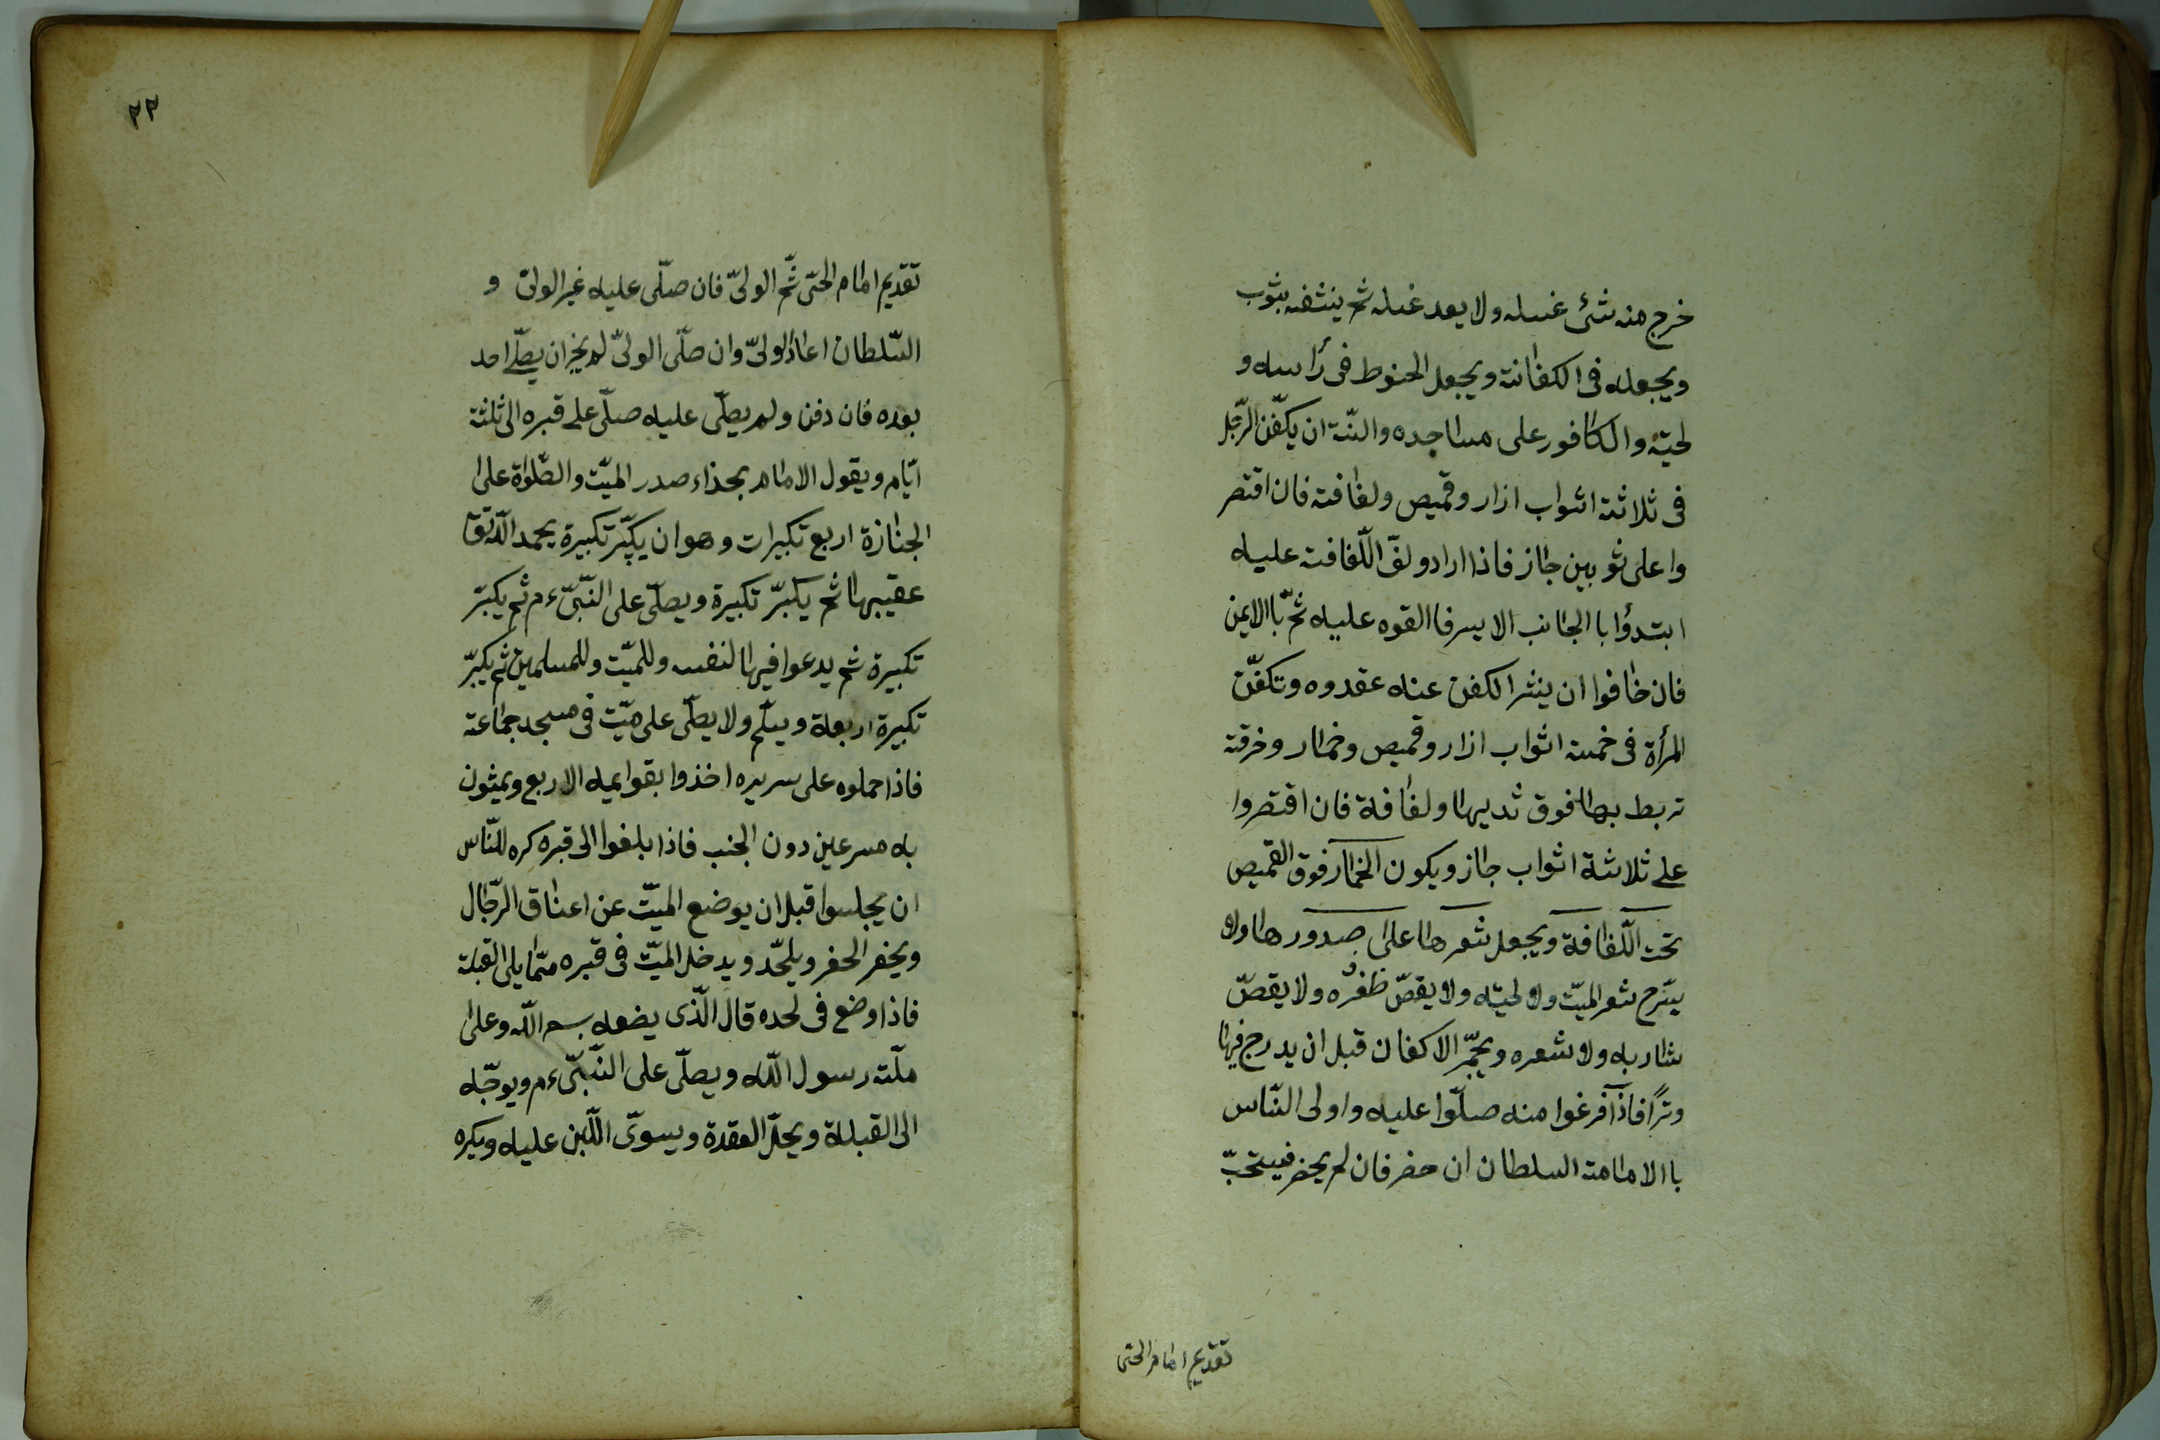 خرج منه شئ غسله ولا يعد غسله ثم ينشفه بثوب
ويجعله فى الكفانة ويجعل الحنوط فى رأسه و
لحيته والكافور على مساجده والسنّة ان يكفّن الرّجل
فى ثلاثة اثواب ازار وقميص ولفافة فان اقتصر
وا على ثوبين جاز فاذا ارادو لفّ اللّفافة عليه
ابتدؤا با الجانب الايسر فا القوه عليه ثمّ با الايمن
فان خافوا ان ينشر الكفن عنه عقدوه وتكفّن
المرأة فى خمسة اثواب ازار وقميص وخمار وخرقة
تربط بها فوق ثديها ولفافة فان اقتصروا
على ثلاثة اثواب جاز ويكون الخمار فوق القميص
تحت اللّفافة ويجعل شعرها على صدورها ولا
يسّرح شعر الميّت ولا لحيته ولا يقصّ ظفره ولا يقصّ
شاربه ولا شعره ويجمّر الاكفان قبل ان يدرج فيها
وترًا فاذا فرغوا منه صلّوا عليه واولى النّاس
با الامامة السلطان ان حضر فان لم يحضر فيستحبّ
تقديم امام الحى
٢٢
تقديم امام الحىّ ثّم الولىّ فان صلّى عليه غير الولىّ و
السّلطان اعاد الولىّ وان صلّى الولىّ لم يجز ان يصلّى احد
بعده فان دفن ولم يصلّى عليه صلّى على قبره الى ثلثة
ايّام ويقول الامام بحذاء صدر الميّت والصّلوٰة على
الجنازة اربع تكبيرات وهو ان يكبّر تكبيرة يحمد اللّه تع
عقيبها ثم يكبّر تكبيرة ويصلّى على النّبىّ ءم ثم يكبّر
تكبيرة ثم يدعوا فيها لنفسه وللميّت وللمسلمين ثم يكبّر
تكبيرة اربعة ويسلّم ولا يصلّى على ميّت فى مسجد جماعة
فاذا حملوه على سريره اخذوا بقوايمه الاربع ويمشون
به مسرعين دون الخبب فاذا بلغوا الى قبره كره للنّاس
ان يجلسوا قبل ان يوضع الميّت عن اعناق الرّجال
ويحفر الحفر ويلحّد ويدخل الميّت فى قبره ممّا يلى القبلة
فاذا وضع فى لحده قال الّذى يضعه بسم اللّه وعلى
ملّة رسول اللّه ويصلّى على النّبىّ ءم ويوجّه
الى القبلة ويحلّ العقدة ويسوّى اللّبن عليه ويكره